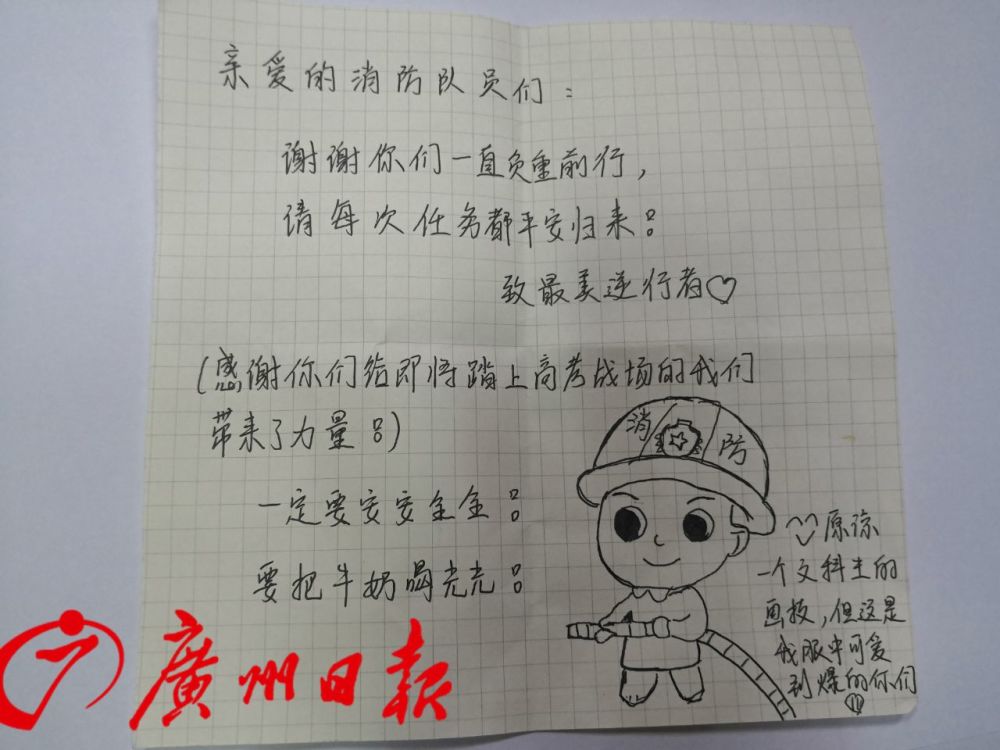 亲爱的消防队员们：
谢谢你们一直负重前行，
请每次任务都平安归来！
致最美逆行者♡
(感谢你们给即将踏上高考战场的我们
带来了力量！)
一定要安安全全！
要把牛奶喝光光！
消防
原谅
一个文科生的
画技，但这是
我眼中可爱
到爆的你们
廣州日報